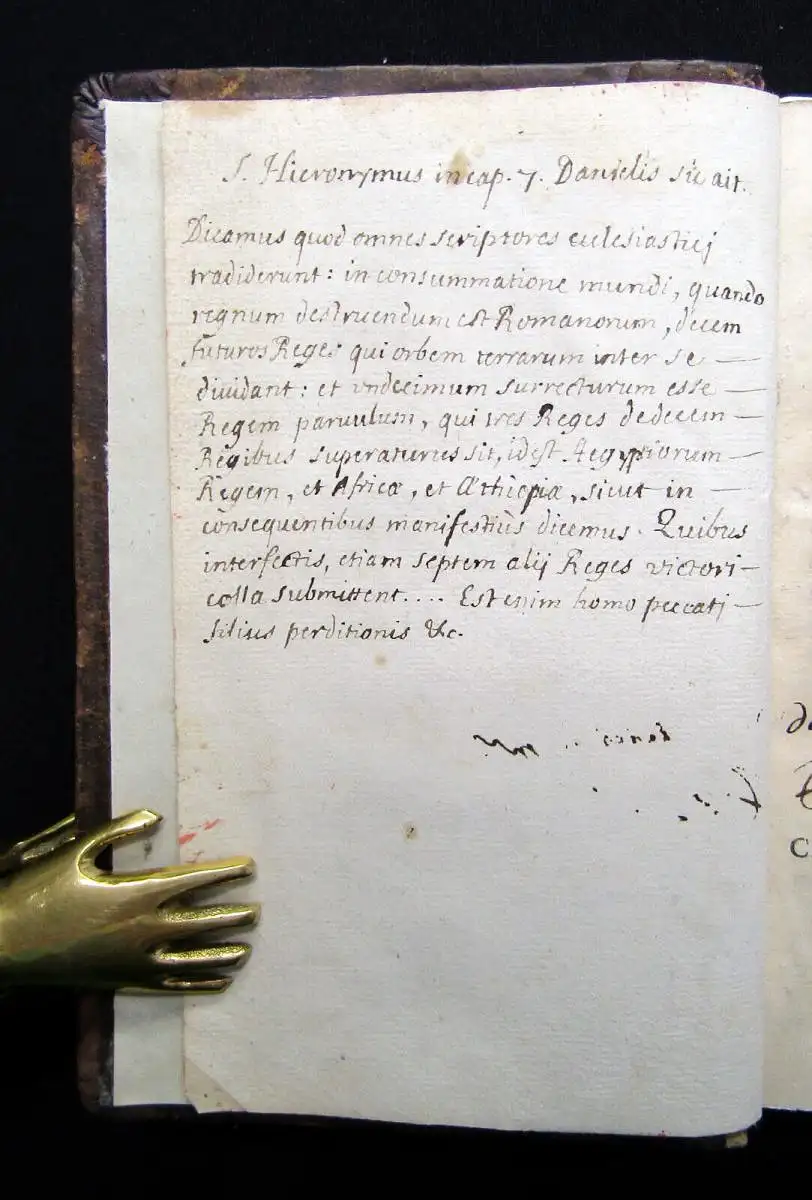 S. Hieronymus in cap. 7. Danielis sic ait.
Dicamus quod omnes scriptores eclesiasticj
tradiderunt: in consummatione mundi, quando
regnum destruendum est Romanorum, decem
futuros Reges qui orbem terrarum inter se —
diuidant: et vndecimum surrecturum esse —
Regem paruulum, qui tres Reges de decem —
Regibus superaturus sit, id est Aegyptiorum —
Regem, et Africæ, et Æthiopiæ, sicut in —
consequentibus manifestiùs dicemus. Quibus
interfectis, etiam septem alij Reges victori —
colla submittent.... Est enim homo peccatj —
filius perditionis &c.